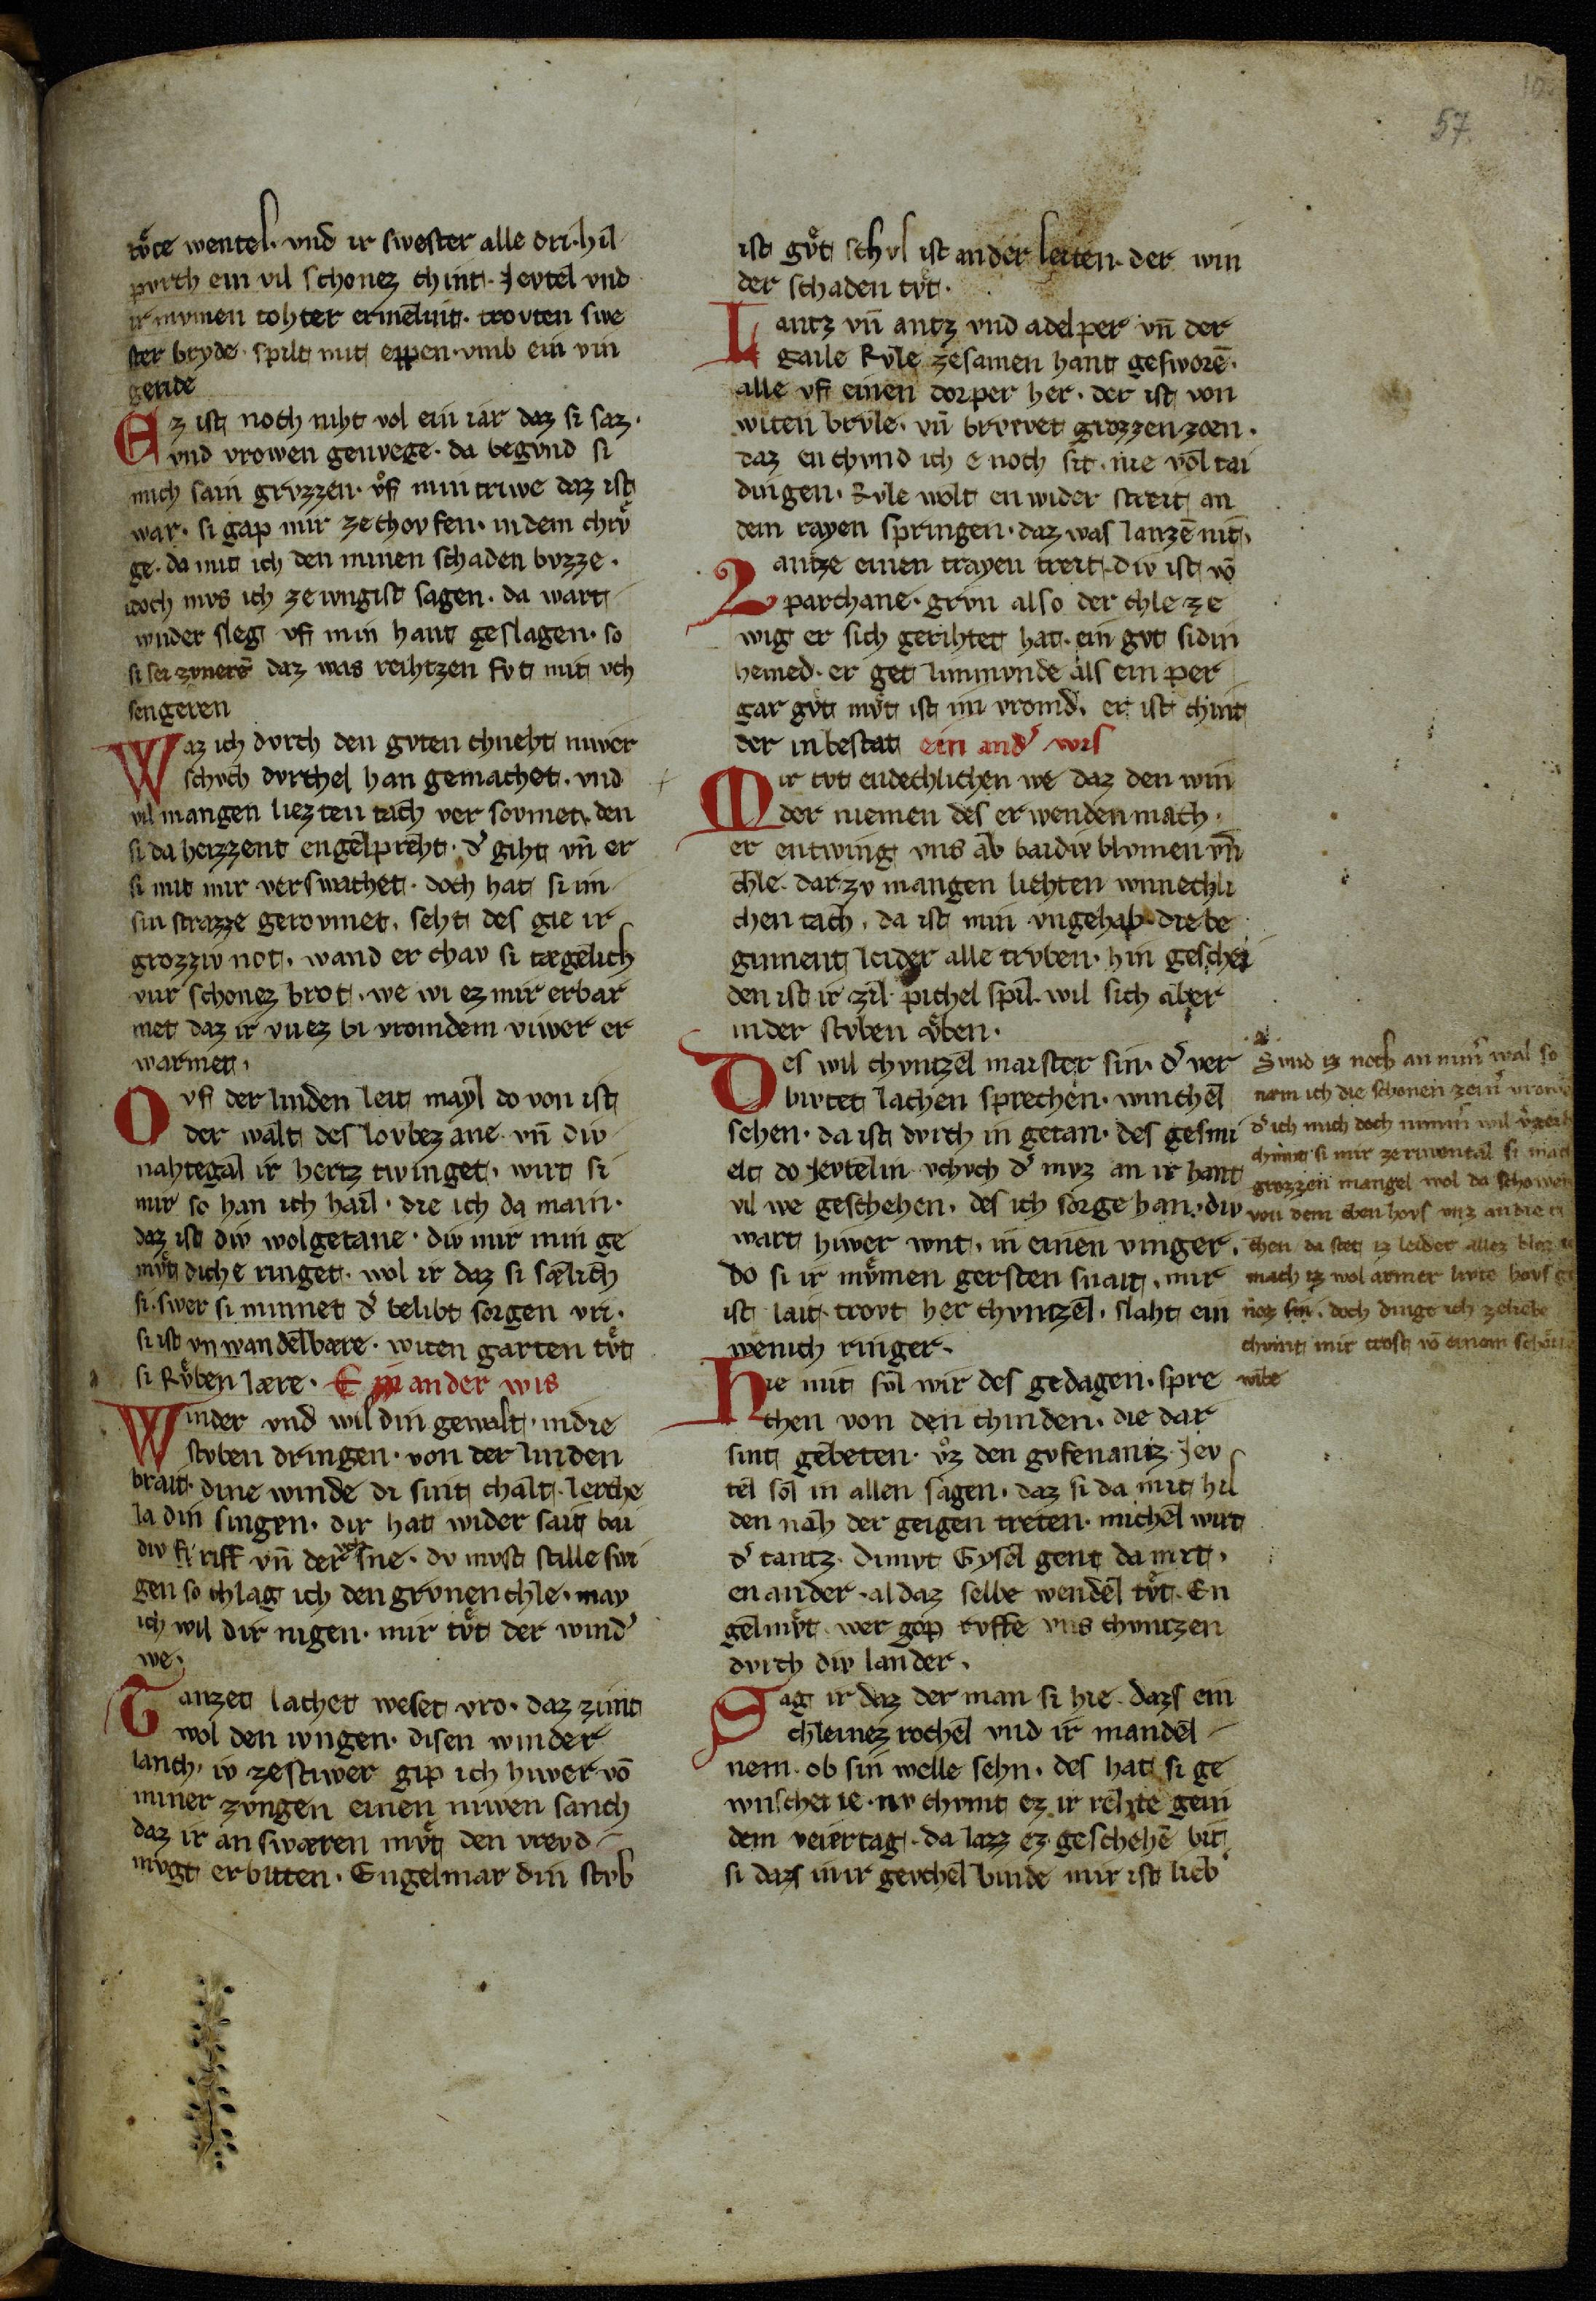 57
tv̊te wentel. vnd ir swester alle dri. hil
pvrch ein vil schonez chint. Jevtel vnd
ir mvmen tohter ermelint. trovten swe
ster bryde. spilt mit eppen. vmb ein vin
geride
Ez ist noch niht vol ein iar daz si saz.
vnd vrowen genvege. da begvnd si
mich sam grvzzen. v̊f min triwe daz ist
war. si gap mir ze chovfen. in dem chrv̊
ge. da mit ich den minen schaden bvzze.
doch mvs ich ze ivngist sagen. da wart
wnder sleg vf min havt geslagen. so
si sei zvnerē daz was reihtzen fvt mit vch
sengeren
Waz ich dvrch den gvten chneht niwer
schvch dvrchel han gemachet. vnd
vil mangen liezten tach ver sovmet. den
si da heizzent engelpreht. d͛ giht vn̄ er
si mit mir verswachet. doch hat si im
sin strazze gerovmet. seht des gie ir
grozziv not. wand er chav si tægelich
vur schonez brot. we wi ez mir erbar
met daz ir vuez bi vromdem viwer er
warmet.
Ovf der linden leit mayl do von ist
der walt des lovbez ane. vn̄ div
nahtegal ir hertz twinget. wirt si
mir so han ich hail. die ich da main.
daz ist div wolgetane. div mir min ge
mv̊t diche ringet. wol ir daz si sælich
si. swer si minnet d͛ belibt sorgen vri.
si ist vnwandelbære. witen garten tv̊t
si Rv̊ben lære. Ein ander wis
Winder vnd wil din gewalt. in die
stvben dringen. von der linden
brait. dine winde di sint chalt. lerche
la din singen. dir hat wider sait bai
div fi riff vn̄ der sne. dv mvst stille swi
gen so chlag ich den grvnen chle. may
ich wil dir nigen. mir tv̊t der wind͛
we.
Tanzet lachet weset vro. daz zimt
wol den ivngen. disen winder
lanch. iv ze stiwer gip ich hiwer vō
miner zvngen einen niwen sanch
daz ir an swæren mv̊t den vrevd
mvgt erbitten. Engelmar din stvb
ist gv̊t schvl ist an der leiten. der win
der schaden tv̊t.
Lantz vn̄ antz vnd adelper vn̄ der
gaile Rvle zesamen hant gesworē.
alle vf einen dorper her. der ist von
witen brvle. vn̄ brvrvet grozzen zoen.
daz enchvnd ich e noch sit. nie vol tai
dingen. Rvle wolt en wider streit an
dem rayen springen. daz was lanzē nit.
Lantze einen trayen treit. div ist vō
parchane. grvn also der chle. ze
wig er sich gerihtet hat. ein gvt sidin
hemed. er get limmvnde als ein per
gar gv̊t mv̊t ist im vromd. er ist chint
der in bestat ein and͛ wis
Mir tvt endechlichen we daz den win
der niemen des erwenden mach.
er entwing vns ab baidiv blvmen vn̄
chle. dar zv mangen liehten wnnechli
chen tach. da ist min vngehab. die be
ginnent leider alle trvben. hin geschei
den ist ir zil. pichel spil. wil sich aber
in der stvben v̊ben.
Des wil chvntzel maister sin. d͛ ver
bivtet lachen sprechen. winchel
sehen. da ist dvrch in getan. des gesmi
elt do Jevtelin. vchvch d͛ mvz an ir hant
vil we geschehen. des ich sorge han. div
wart hiwer wnt. in einen vinger.
do si ir mv̊men gersten snait. mir
ist lait. trovt her chvntzel. slaht ein
wenich ringer.
Hie mit sol wir des gedagen. spre
chen von den chinden. die dar
sint gebeten. v̊z den gvfenantz. Jev
tel sol in allen sagen. daz si da mit hil
den nah der geigen treten. michel wirt
d͛ tantz. dimvt Gysel gent da mit.
en ander. al daz selbe wendel tv̊t. En
gelmv̊t. wer gop rvffe vns chvntzen
dvrch div lander.
Sag ir daz der man si hie. dazs ein
chleinez rochel vnd ir mandel
nem. ob sin welle sehn. des hat si ge
wnschet ie. nv chvmt ez ir rehte gein
dem veiertag. da lazz ez geschehē bit
si dazs in ir gevchel binde mir ist lieb
Svnd iz noch an min͛ wal so
næm ich die schonen zein͛ vrowē
d͛ ich mich doch nimm͛ wil
chvmt si mir ze riwental si mach
grozzen mangel wol da schowen
von dem ebenhovs vnz an die ri
chen da stet iz leider allez bloz
mach iz wol armer livte hovs ge
noz sin. doch dinge ich ze liebe
chvmt mir trost vō einem schonē
wibe